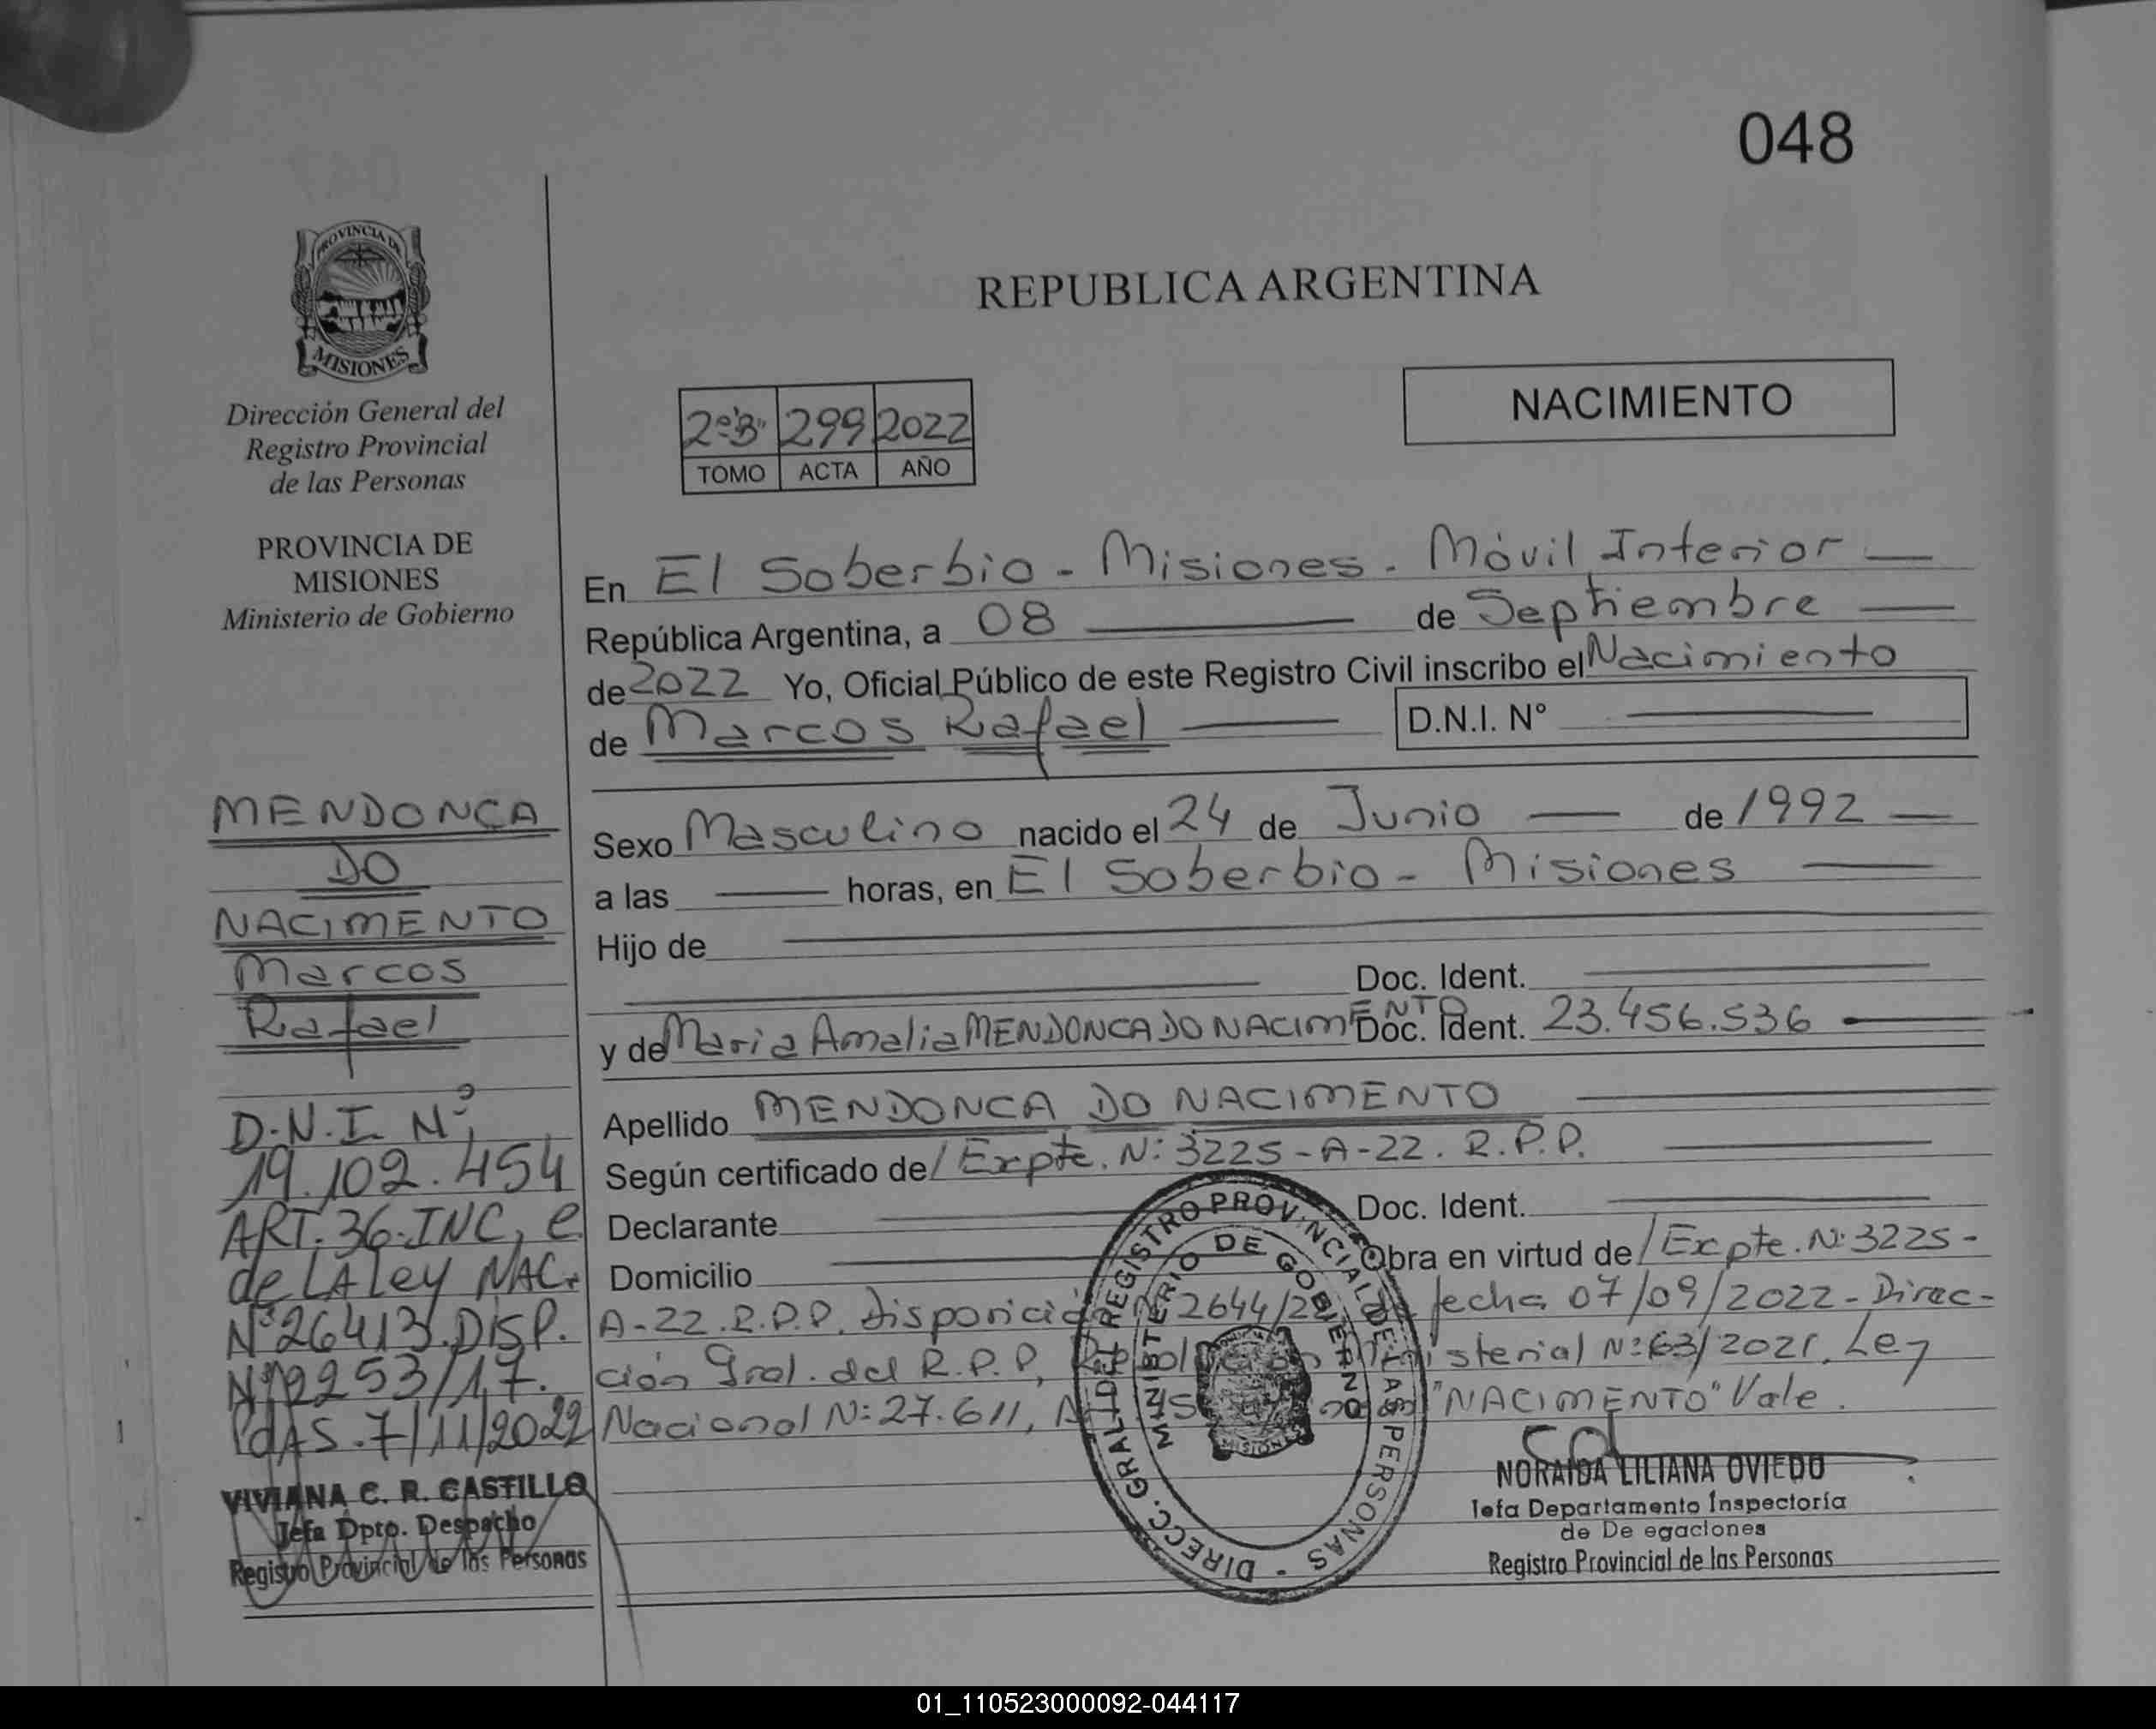 048
PROVINCIA DE
MISIONES
Dirección General del
Registro Provincial
de las Personas
PROVINCIA DE
MISIONES
Ministerio de Gobierno
MENDONCA
DO
NACIMENTO
Marcos
Rafael
D.N.I. Nº
19.102.454
ART. 36. INC, e
de LA Ley NAC.
Nº 26413. DISP.
Nº 2253/17.
PdAS. 7/11/2022
VIVIANA C. R. CASTILLO
Jefa Dpto. Despacho
Registro Provincial de las Personas
REPUBLICA ARGENTINA
NACIMIENTO
2º"B" 299 2022
TOMO ACTA AÑO
En El Soberbio - Misiones. Móvil Interior
República Argentina, a 08 de Septiembre
de 2022 Yo, Oficial Público de este Registro Civil inscribo el Nacimiento
de Marcos Rafael D.N.I. N°
Sexo Masculino nacido el 24 de Junio de 1992
a las horas, en El Soberbio - Misiones
Hijo de
Doc. Ident.
y de Maria Amalia MENDONCA DO NACIMENTO Doc. Ident. 23.456.536
Apellido MENDONCA DO NACIMENTO
Según certificado de/ Expte. N: 3225-A-22. R.P.P.
Declarante Doc. Ident.
Domicilio Obra en virtud de/ Expte. N: 3225-
A-22.R.P.P. Disposición Nº 2644/22 de fecha 07/09/2022 - Direc-
ción Gral. del R.P.P, Resolución Ministerial N: 63/2021. Ley
Nacional N: 27.611, "NACIMENTO" Vale.
DIRECC. GRAL. DEL REGISTRO PROVINCIAL DE LAS PERSONAS -
MINISTERIO DE GOBIERNO
MISIONES
NORAIDA LILIANA OVIEDO
Jefa Departamento Inspectoría
de De egaciones
Registro Provincial de las Personas
01_110523000092-044117